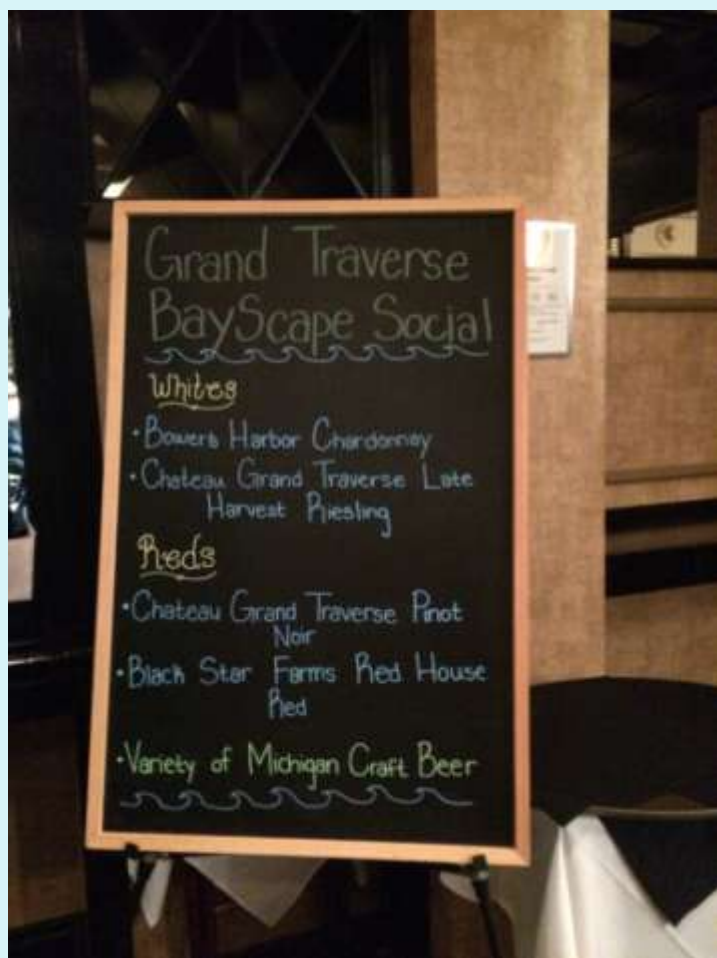 Grand Traverse
BayScape Social
Whites
• Bowers Harbor Chardonnay
• Chateau Grand Traverse Late
Harvest Riesling
Reds
• Chateau Grand Traverse Pinot
Noir
• Black Star Farms Red House
Red
• Variety of Michigan Craft Beer